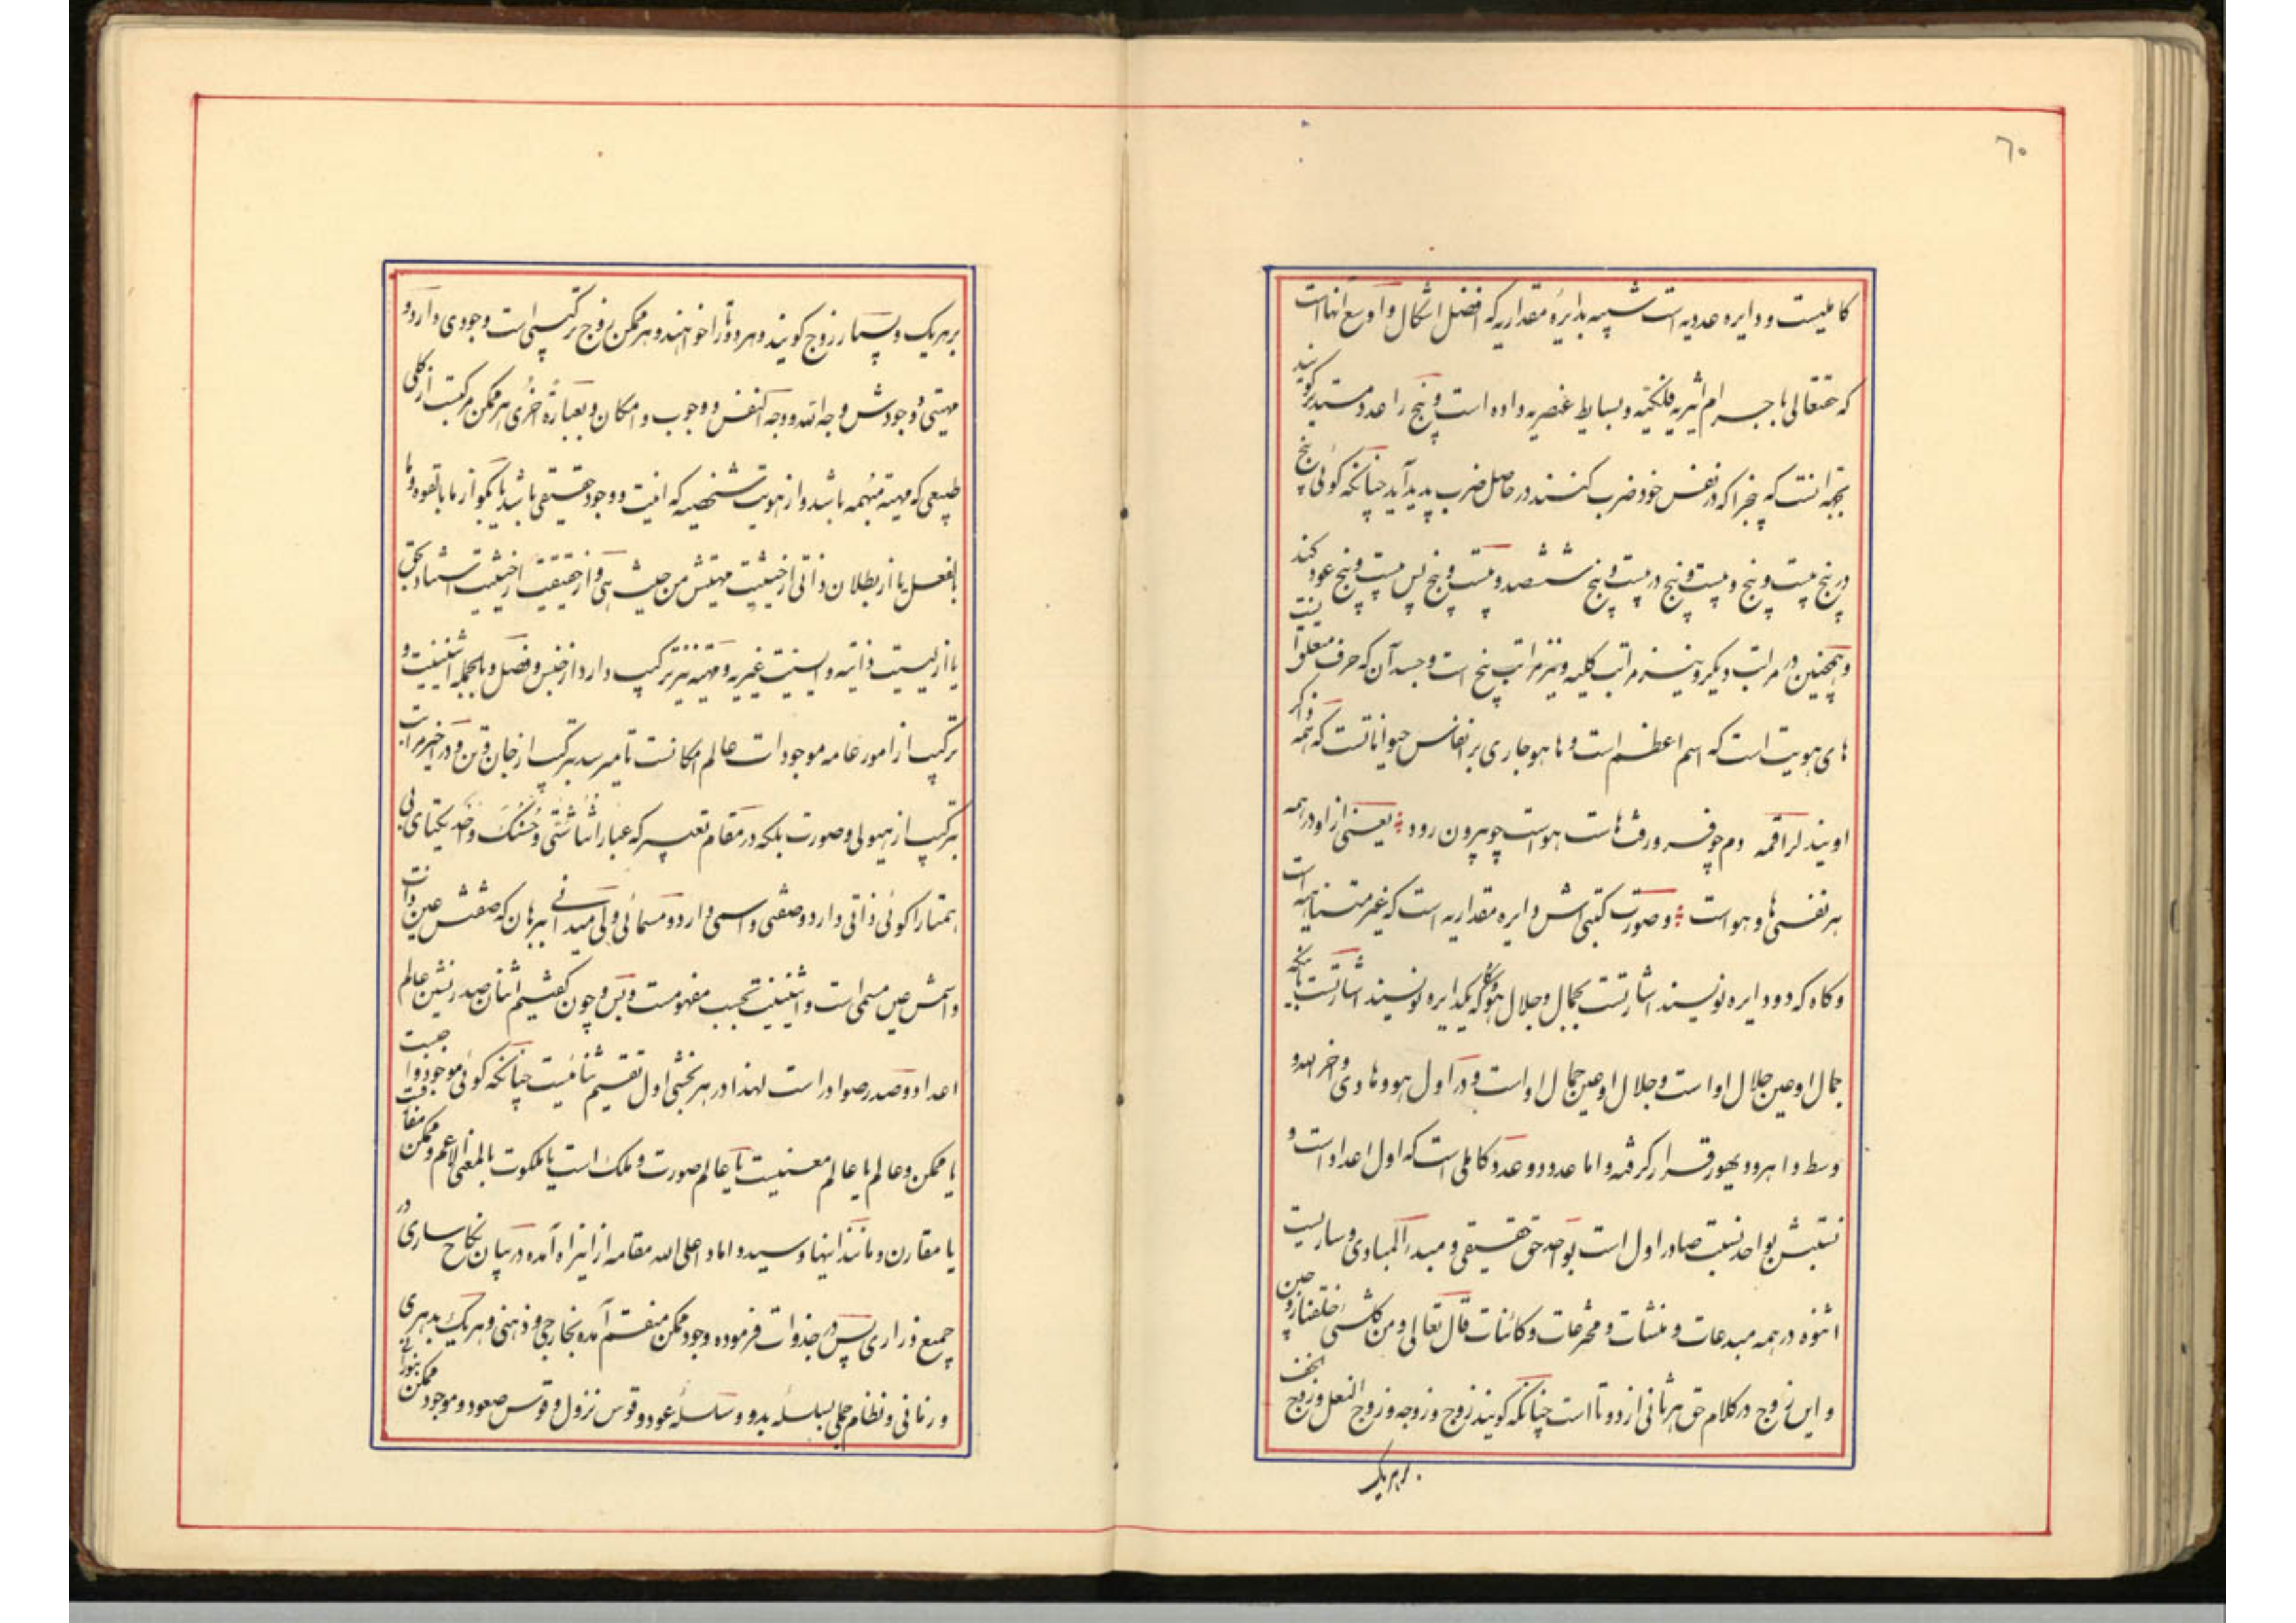 ٦٠
کاملیست و دایره عددیه است شبیه بدایرهٔ مقداریه که افضل اشکال و اوسع آنهاست
که حقتعالی باجرام اثیریه فلکیه و بسایط عنصریه داده است و پنج را عدد مستدیر گویند
بجهة انست که پنجرا که در نفس خود ضرب کنند در حاصل ضرب پدید آید چنانکه گوئی پنج
در پنج بیست و پنج و بیست و پنج در بیست و پنج ششصد و بیست و پنج پس بیست و پنج عود کند
و همچنین در مراتب دیگر و نیز مراتب کلیه و نیز مراتب پنج است و جسد آن که حرف
های هویت است که اسم اعظم است و ها هو جاری بر انفاس حیواناتست که همه ذاکر
اویند لراقمه دم چو فرو رفت هاست هوست چو بیرون رود یعنی از او در همه
هر نفسی ها و هو است و صورت کتبی اش دایره مقداریه است که غیر متناهیه است
و کاه که دو دایره نویسند اشارتست بجمال و جلال هو و کاه که یکدایره نویسند اشارتست بانکه
جمال او عین جلال اوا ست و جلال او عین جمال او است و در اول هو و هادی و اخر الله و
وسط و ا هرود بهور قرار گرفته و اما عدد دو عدد کاملی است که اول اعداد است و
نسبتش بواحد نسبت صادر اول است بواحد حق حقیقی و مبدء المبادی و ساریست
اثنوه در همه مبدعات و منشات و مخترعات و کائنات قال تعالی و من کلشیئ خلقنا زوجین
و این زوج در کلام حق هر ثانی از دو تا است چنانکه گویند زوج و زوجه و زوج النعل و زوج الخف
بر هریک
بر هریک و بسیار زوج گویند و هر دو تا را خواهند و هر ممکن زوج ترکیبی است وجودی دارد و
مهیتی و وجودش وجه الله و وجه النفس و وجوب و امکان و بعبارة اخری هر ممکن مرکبست از کلی
طبیعی که مهیته مبهمه باشد و از هویت شخصیه که انیت و وجود حقیقی باشد یا بگو از ما بالقوه و ما
بالفعل یا از بطلان ذاتی از حیثیت مهیتش من حیث هی و از حقیقت از حیثیت استناد بحق
یا از لیسیت ذاتیه و ایسیت غیریه و مهیته نیز ترکیب دارد از جنس و فصل و بالجمله اثنینیت و
ترکیب از امور عامه موجودات عالم امکانست تا میرسد بترکیب از جان و تن و در اخیر مراتب
بترکیب از هیولی و صورت بلکه در مقام تعبیر که عباراتنا شتی و حسنک واحد یکتای بی
همتا را گوئی ذاتی دارد و صفتی و اسمی دارد و مسمائی ولی میدانی ببرهان که صفتش عین ذات
و اسمش عین مسمی است و اثنینیت بحسب مفهومست و بس و چون گفتیم اثنان صدر نشین عالم
اعداد و صدر صوادر است لهذا در هر بخشی اول تقسیم ثنائیست چنانکه گوئی موجود واجبست
یا ممکن و عالم یا عالم معنیست یا عالم صورت و ملک است یا ملکوت بالمعنی الاعم و ممکن مفارقست
یا مقارن و مانند اینها و سید داماد اعلی الله مقامه از اینراه آمده در بیان نکاح ساری در
جمیع ذراری پس در جذوات فرموده وجود ممکن منقسم آمده بخارجی و ذهنی و هریک بدهری
و زمانی و نظام جملی بسلسلهٔ بدو و سلسلهٔ عود و قوس نزول و قوس صعود و موجود ممکن